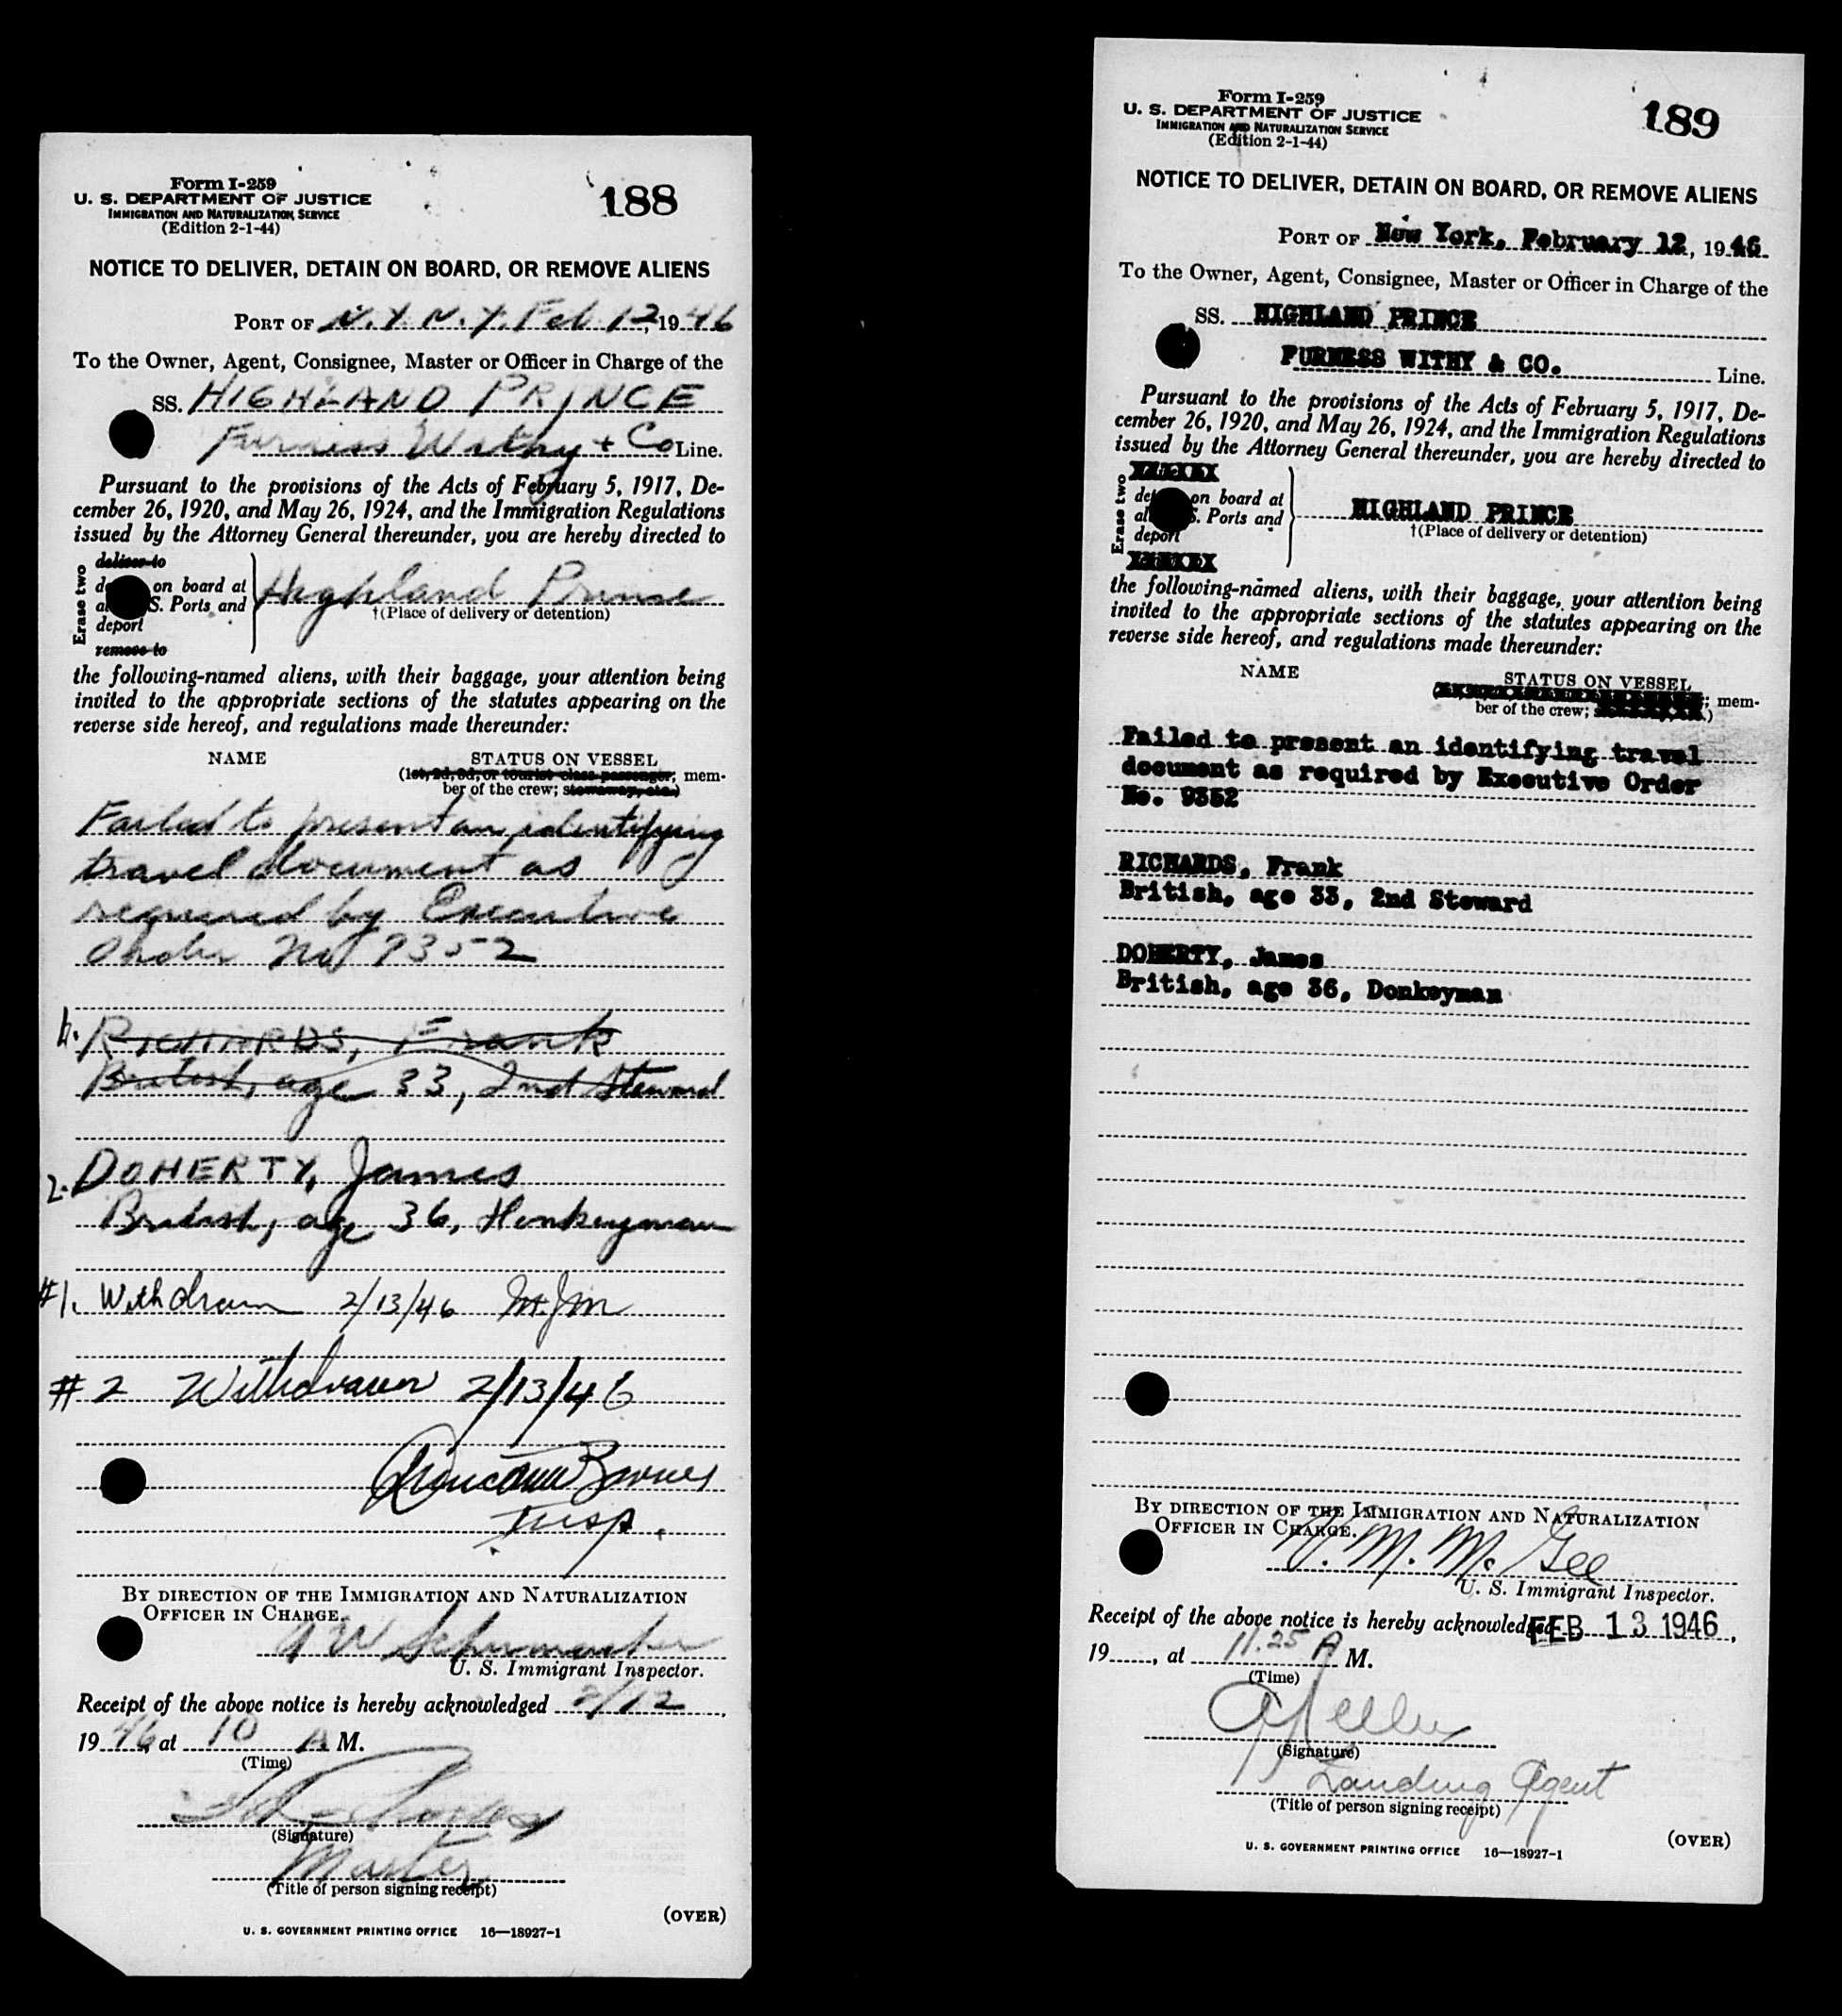 Form I-259
U. S. DEPARTMENT OF JUSTICE
IMMIGRATION AND NATURALIZATION SERVICE
(Edition 2-1-44)
188
NOTICE TO DELIVER, DETAIN ON BOARD, OR REMOVE ALIENS
PORT OF N.Y. N.Y. Feb 12, 1946
To the Owner, Agent, Consignee, Master or Officer in Charge of the
SS. HIGHLAND PRINCE
Furness Withy + Co Line.
Pursuant to the provisions of the Acts of February 5, 1917, De-
cember 26, 1920, and May 26, 1924, and the Immigration Regulations
issued by the Attorney General thereunder, you are hereby directed to
Erase two
deliver to
on board at
S. Ports and
deport
remove to
Highland Prince
†(Place of delivery or detention)
the following-named aliens, with their baggage, your attention being
invited to the appropriate sections of the statutes appearing on the
reverse side hereof, and regulations made thereunder:
NAME STATUS ON VESSEL
(1st, 2d, 3d, or tourist class passenger; mem-
ber of the crew; stowaway, etc.)
Failed to present an identifying
travel document as
required by Executive
Order No 9352
1. RICHARDS, Frank
British, age 33, 2nd Steward
2. DOHERTY, James
British, age 36,
#1. Withdrawn 2/13/46 MJM
#2 Withdrawn 2/13/46
Insp.
BY DIRECTION OF THE IMMIGRATION AND NATURALIZATION
OFFICER IN CHARGE.
U. S. Immigrant Inspector.
Receipt of the above notice is hereby acknowledged 2/12,
1946, at 10 A. M.
(Time)
(Signature)
Master
(Title of person signing receipt)
(OVER)
U. S. GOVERNMENT PRINTING OFFICE 16—18927-1
Form I-259
U. S. DEPARTMENT OF JUSTICE
IMMIGRATION AND NATURALIZATION SERVICE
(Edition 2-1-44)
189
NOTICE TO DELIVER, DETAIN ON BOARD, OR REMOVE ALIENS
PORT OF New York, February 12, 1946.
To the Owner, Agent, Consignee, Master or Officer in Charge of the
SS. HIGHLAND PRINCE
FURNESS WITHY & CO. Line.
Pursuant to the provisions of the Acts of February 5, 1917, De-
cember 26, 1920, and May 26, 1924, and the Immigration Regulations
issued by the Attorney General thereunder, you are hereby directed to
Erase two
on board at
S. Ports and
deport
HIGHLAND PRINCE
†(Place of delivery or detention)
the following-named aliens, with their baggage, your attention being
invited to the appropriate sections of the statutes appearing on the
reverse side hereof, and regulations made thereunder:
NAME STATUS ON VESSEL
; mem-
ber of the crew; )
Failed to present an identifying travel
document as required by Executive Order
No. 9352
RICHARDS, Frank
British, age 33, 2nd Steward
DOHERTY, James
British, age 36, Donkeyman
BY DIRECTION OF THE IMMIGRATION AND NATURALIZATION
OFFICER IN CHARGE.
V. M. McGee
U. S. Immigrant Inspector.
Receipt of the above notice is hereby acknowledged FEB 13 1946,
19....., at 11.25 A M.
(Time)
(Signature)
Landing Agent
(Title of person signing receipt)
(OVER)
U. S. GOVERNMENT PRINTING OFFICE 16—18927-1